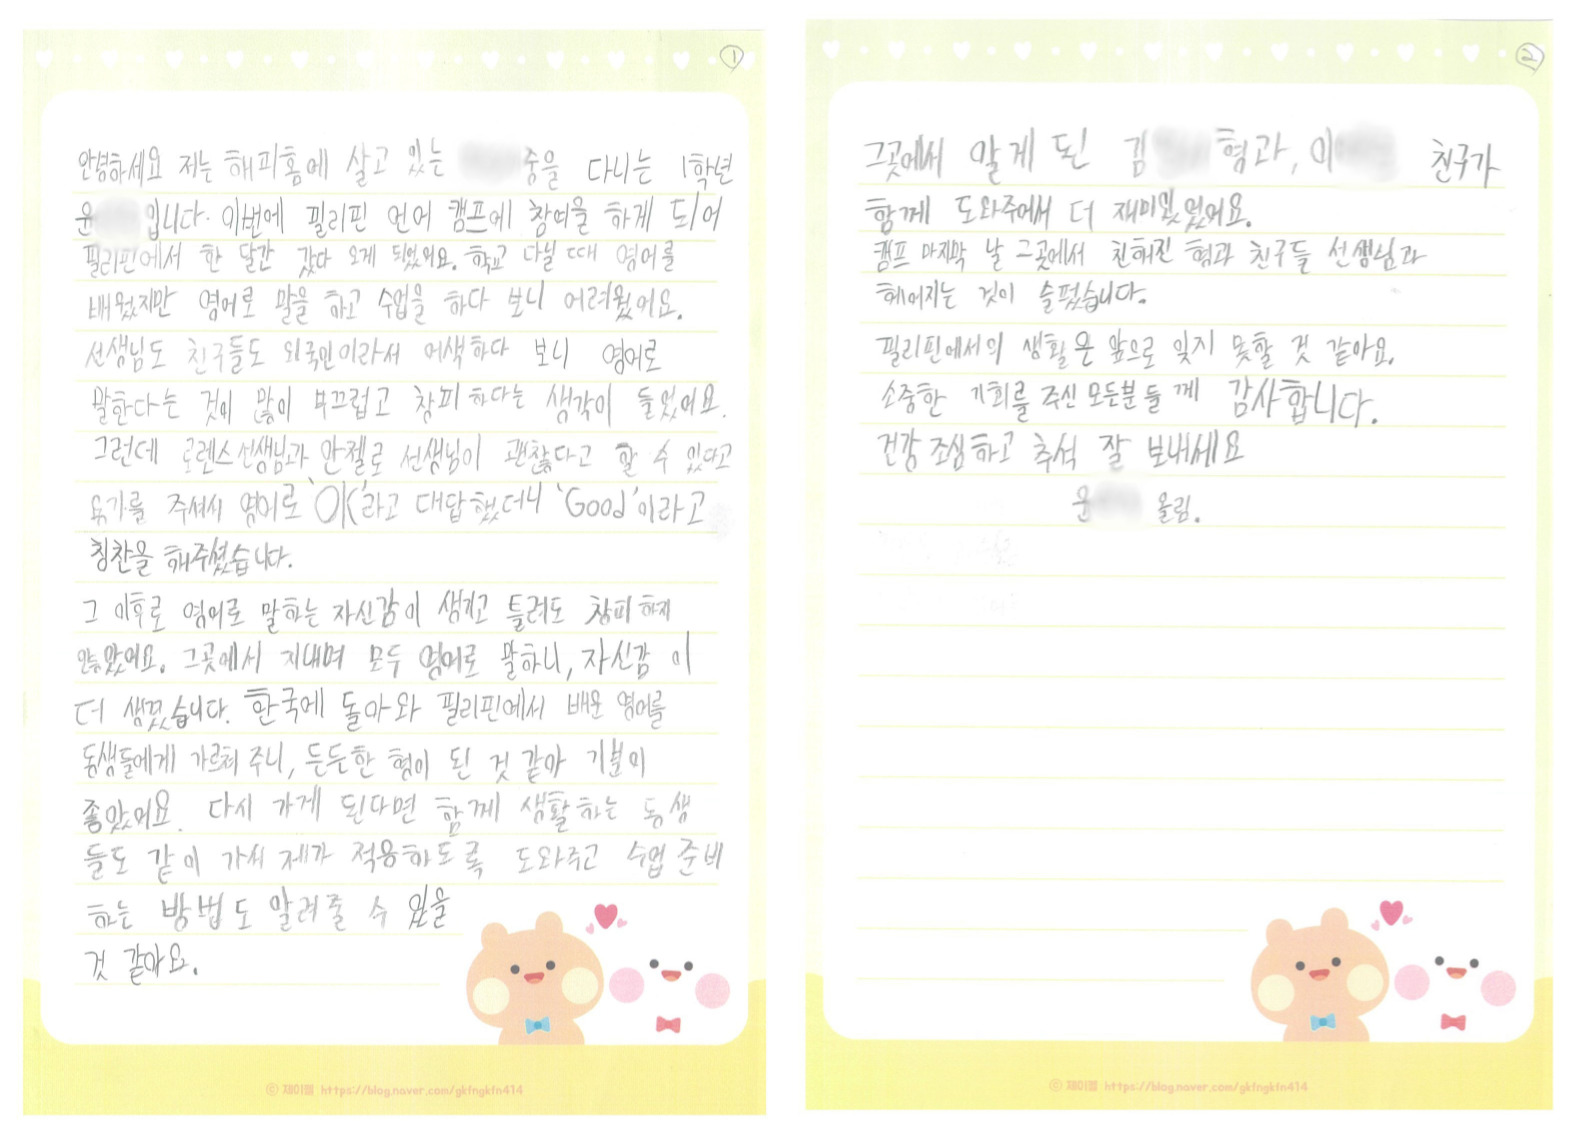 ①
안녕하세요 저는 해피홈에 살고 있는 중을 다니는 1학년
윤 입니다. 이번에 필리핀 언어 캠프에 참여를 하게 되어
필리핀에서 한 달간 갔다 오게 되었어요. 학교 다닐 때 영어를
배웠지만 영어로 말을 하고 수업을 하다 보니 어려웠어요.
선생님도 친구들도 외국인이라서 어색하다 보니 영어로
말한다는 것이 많이 부끄럽고 창피하다는 생각이 들었어요.
그런데 로렌스선생님과 안젤로 선생님이 괜찮다고 할 수 있다고
용기를 주셔서 영어로 'OK'라고 대답했더니 'Good'이라고
칭찬을 해주셨습니다.
그 이후로 영어로 말하는 자신감이 생기고 틀려도 창피하지
않았어요. 그곳에서 지내며 모두 영어로 말하니, 자신감이
더 생겼습니다. 한국에 돌아와 필리핀에서 배운 영어를
동생들에게 가르쳐 주니, 든든한 형이 된 것 같아 기분이
좋았어요. 다시 가게 된다면 함께 생활하는 동생
들도 같이 가서 제가 적응하도록 도와주고 수업 준비
하는 방법도 알려줄 수 있을
것 같아요.
ⓒ 재이엘 https://blog.naver.com/gkfngkfn414
②
그곳에서 알게 된 김 형과, 이 친구가
함께 도와주어서 더 재미있었어요.
캠프 마지막 날 그곳에서 친해진 형과 친구들 선생님과
헤어지는 것이 슬펐습니다.
필리핀에서의 생활은 앞으로 잊지 못할 것 같아요.
소중한 기회를 주신 모든분들께 감사합니다.
건강 조심하고 추석 잘 보내세요
윤 올림.
ⓒ 재이엘 https://blog.naver.com/gkfngkfn414